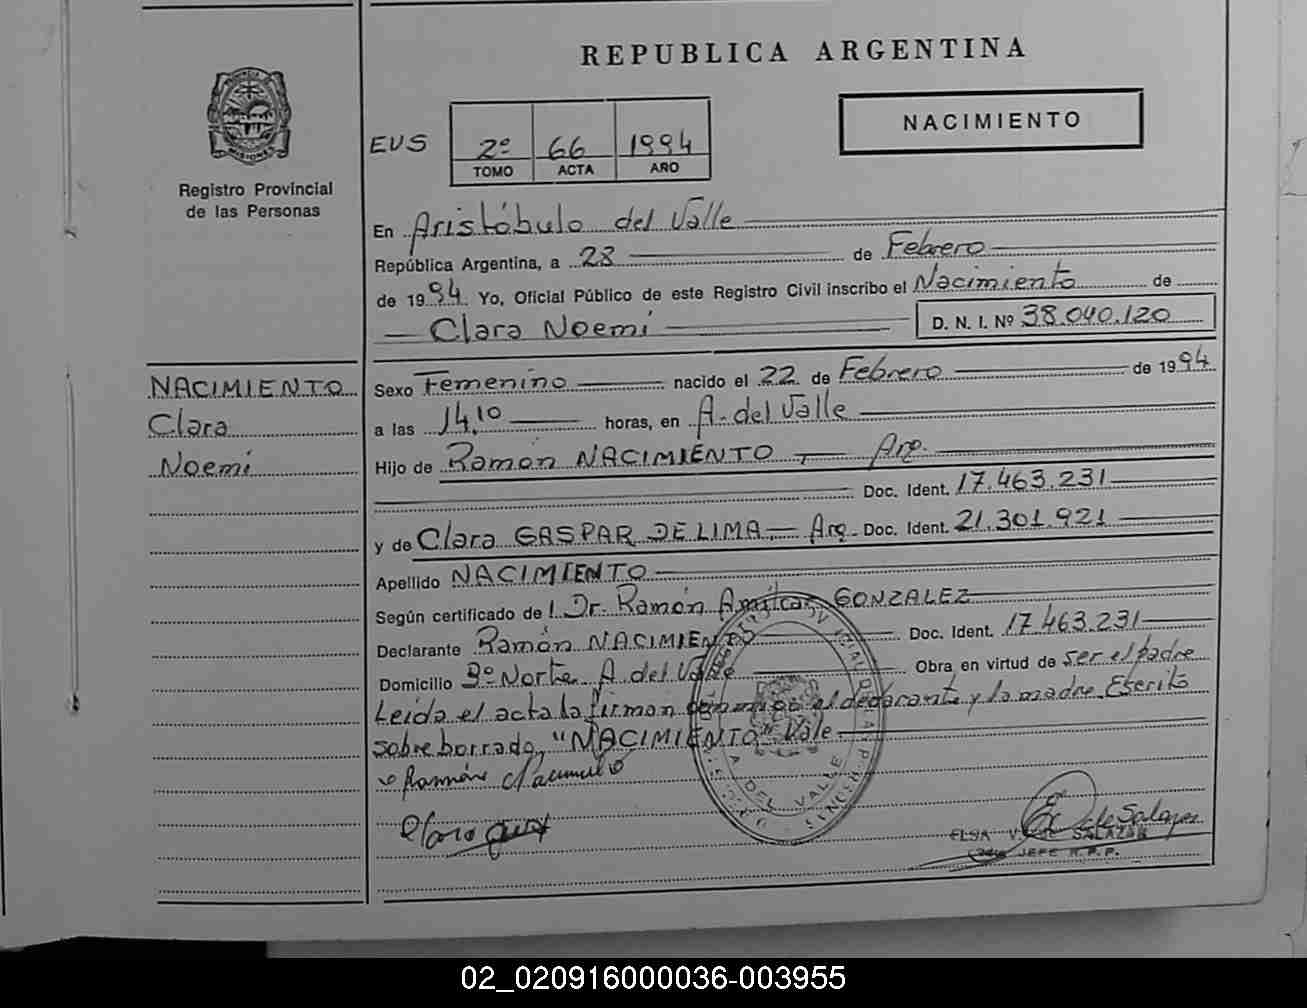 REPUBLICA ARGENTINA
PROVINCIA
MISIONES
Registro Provincial
de las Personas
EUS
2º 66 1994
TOMO ACTA AÑO
NACIMIENTO
En Aristóbulo del Valle
República Argentina, a 28 de Febrero
de 1994. Yo, Oficial Público de este Registro Civil inscribo el Nacimiento de
Clara Noemi
D. N. I. Nº 38.040.120
NACIMIENTO
Clara
Noemi
Sexo Femenino nacido el 22 de Febrero de 1994
a las 14,10 horas, en A. del Valle
Hijo de Ramón NACIMIENTO, Arg.
Doc. Ident. 17.463.231
y de Clara GASPAR DE LIMA, Arg. Doc. Ident. 21.301.921
Apellido NACIMIENTO
Según certificado de l Dr. Ramón Amilcar GONZALEZ
Declarante Ramón NACIMIENTO Doc. Ident. 17.463.231
Domicilio Bº Norte A. del Valle Obra en virtud de ser el padre
Leída el acta la firman conmigo el declarante y la madre. Escrito
sobre borrado, "NACIMIENTO" Vale.
Ramón Nacimiento
Clara
A. DEL VALLE
E. V. de Salazar
ELSA V. DE SALAZAR
JEFE R.P.P.
02_020916000036-003955